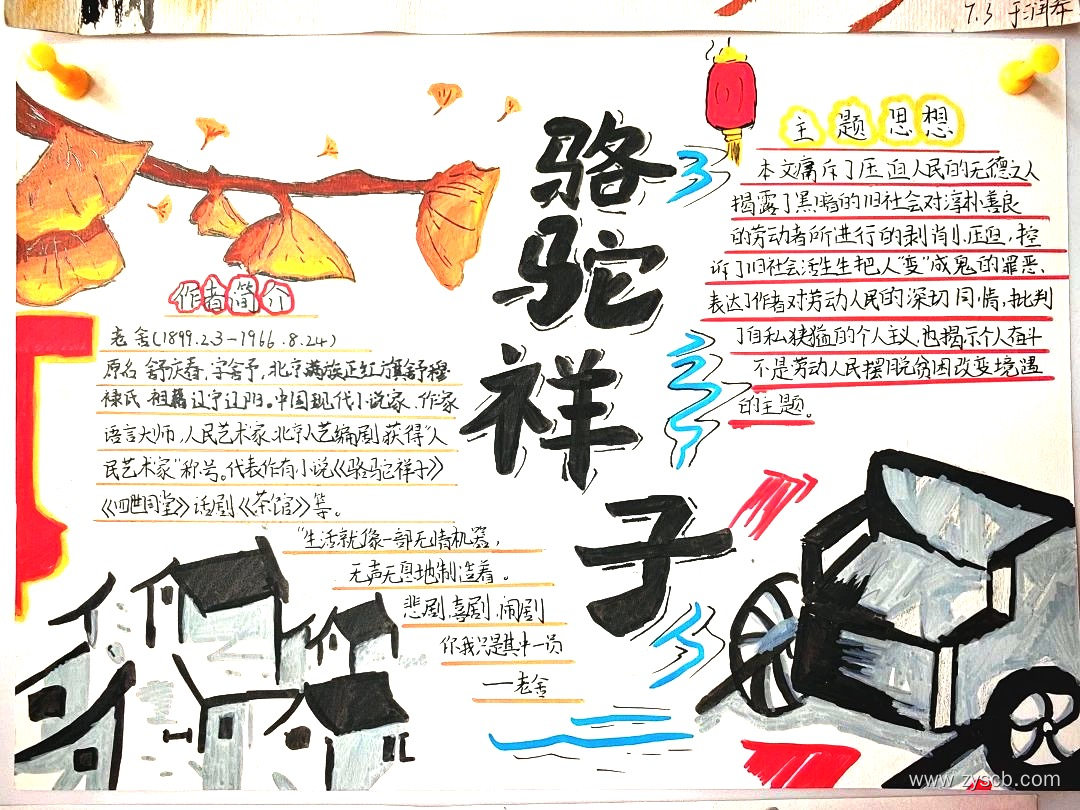 7.3
骆驼祥子
作者简介
老舍(1899.2.3-1966.8.24)
原名舒庆春,字舍予,北京满族正红旗舒穆
禄氏,祖籍辽宁辽阳。中国现代小说家、作家
语言大师,人民艺术家,北京人艺编剧,获得“人
民艺术家”称号。代表作有小说《骆驼祥子》
《四世同堂》话剧《茶馆》等。
“生活就像一部无情机器,
无声无息地制造着。
悲剧,喜剧,闹剧
你我只是其中一员
—老舍
主题思想
本文痛斥了压迫人民的无德之人
揭露了黑暗的旧社会对淳朴善良
的劳动者所进行的剥削、压迫,控
诉了旧社会活生生把人“变”成鬼的罪恶,
表达了作者对劳动人民的深切同情,批判
了自私狭隘的个人主义,也揭示个人奋斗
不是劳动人民摆脱贫困改变境遇
的主题。
www.zyscb.com